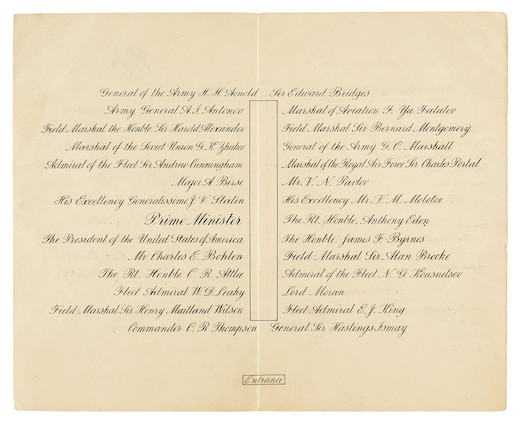 General of the Army H. H. Arnold
Army General A.I. Antonov
Field-Marshal the Honble Sir Harold Alexander
Marshal of the Soviet Union G. K. Zhukov
Admiral of the Fleet Sir Andrew Cunningham
Major A Birse
His Excellency Generalissimo J. V. Stalin
Prime Minister
The President of the United States of America
Mr Charles E. Bohlen
The Rt. Honble C. R. Attlee
Fleet Admiral W. D. Leahy
Field-Marshal Sir Henry Maitland Wilson
Commander C. R. Thompson
Sir Edward Bridges
Marshal of Aviation F. Ya Falalev
Field Marshal Sir Bernard Montgomery
General of the Army G. C. Marshall
Marshal of the Royal Air Force Sir Charles Portal
Mr. V. N. Pavlov
His Excellency Mr. V. M. Molotov
The Rt. Honble. Anthony Eden
The Honble. James F. Byrnes
Field-Marshal Sir Alan Brooke
Admiral of the Fleet N. G. Kousnetsov
Lord Moran
Fleet Admiral E. J. King
General Sir Hastings Ismay
Entrance